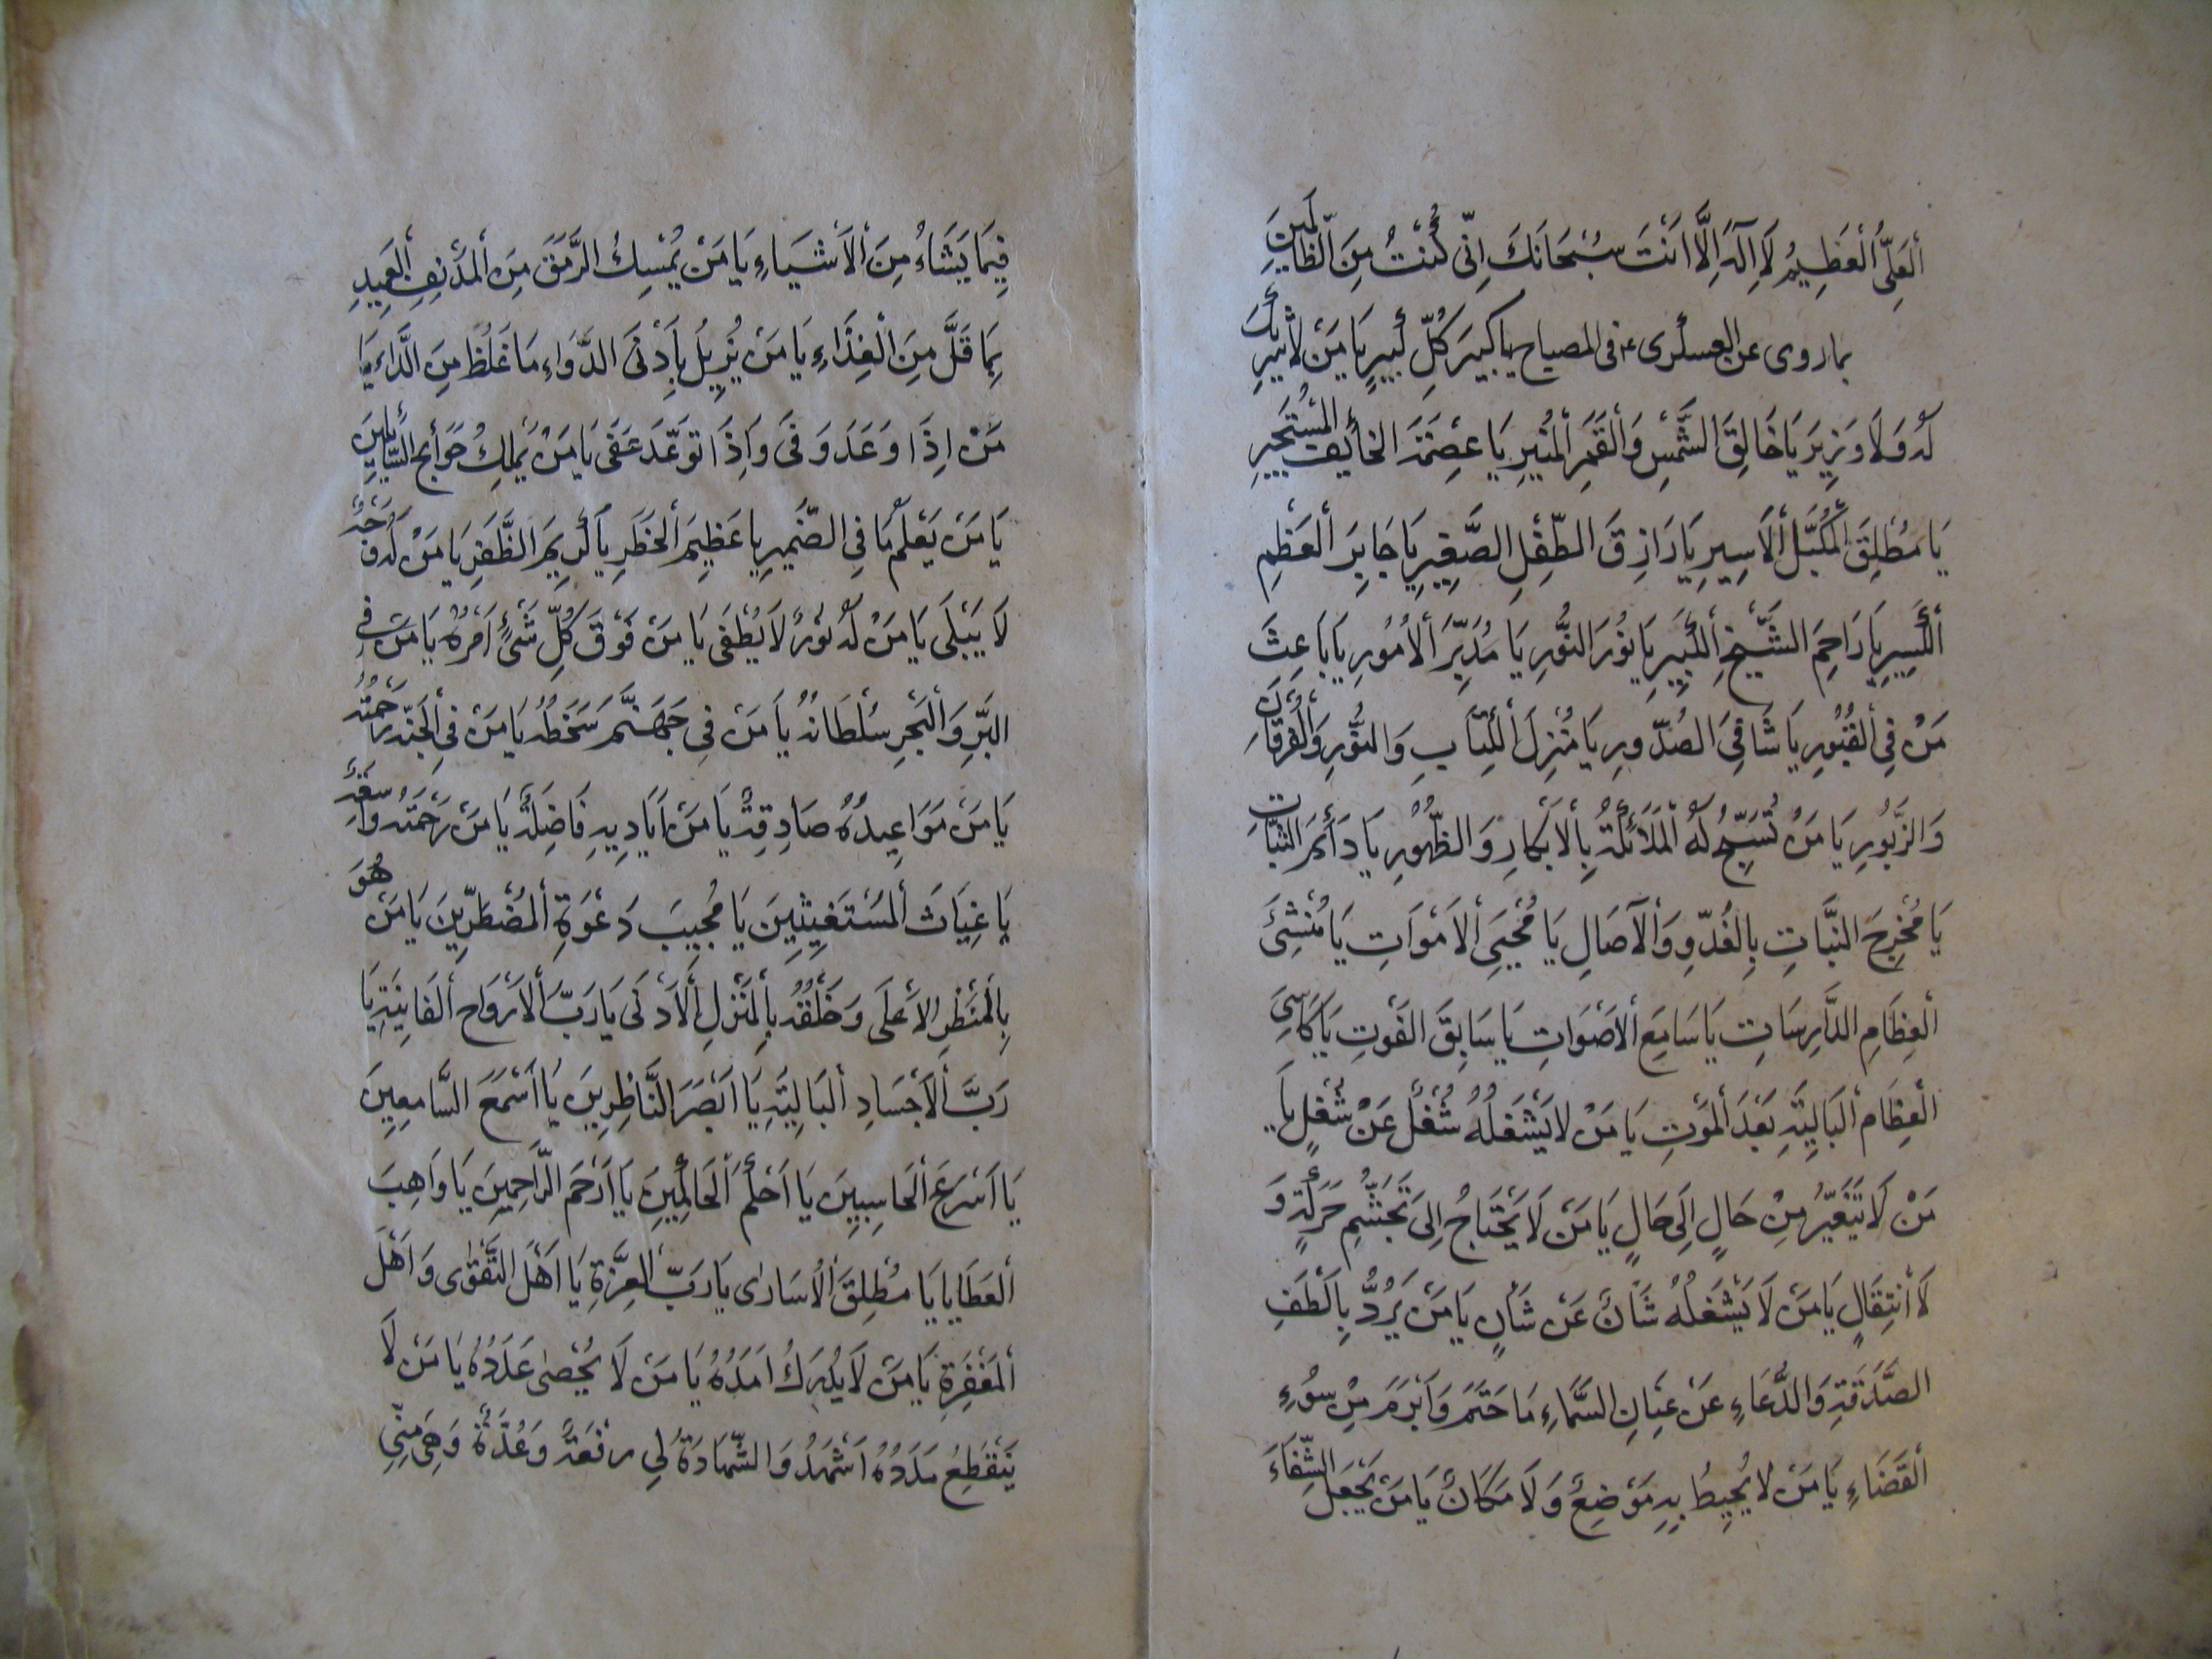 أَلْعَلِىُّ أَلْعَظِيمُ لَا اِلَهَ اِلَّا اَنْتَ سُبْحَانَكَ اِنِّى كُنْتُ مِنَ الظَّالِمِينَ
بما روى عن العسكرى ع فى المصباح يا كَبِيرَ كُلِّ كَبِيرٍ يَا مَنْ لَا شَرِيكَ
لَهُ وَلَا وَزِيرَ يَا خَالِقَ الشَّمْسِ وَالْقَمَرِ الْمُنِيرِ يَا عِصْمَةَ الْخَائِفِ الْمُسْتَجِيرِ
يَا مُطْلِقَ الْمُكَبَّلِ أَلْاَسِيرِ يَا رَازِقَ الطِّفْلِ الصَّغِيرِ يَا جَابِرَ أَلْعَظْمِ
أَلْكَسِيرِ يَا رَاحِمَ الشَّيْخِ أَلْكَبِيرِ يَا نُورَ النُّورِ يَا مُدَبِّرَ أَلْاُمُورِ يَا بَاعِثَ
مَنْ فِى أَلْقُبُورِ يَا شَافِىَ الصُّدُورِ يَا مُنْزِلَ أَلْكِتَابِ وَالنُّورِ وَأَلْفُرْقَانِ
وَالزَّبُورِ يَا مَنْ تُسَبِّحُ لَهُ أَلْمَلَائِكَةُ بِأَلْاَبْكَارِ وَالظُّهُورِ يَا دَائِمَ الثَّبَاتِ
يَا مُخْرِجَ النَّبَاتِ بِالْغُدُوِّ وَأَلْآصَالِ يَا مُحْيِىَ أَلْاَمْوَاتِ يَا مُنْشِئَ
أَلْعِظَامِ الدَّارِسَاتِ يَا سَامِعَ أَلْاَصْوَاتِ يَا سَابِقَ الْفَوْتِ يَا كَاسِىَ
أَلْعِظَامِ أَلْبَالِيَةِ بَعْدَ أَلْمَوْتِ يَا مَنْ لَا يَشْغَلُهُ شُغْلٌ عَنْ شُغْلٍ يَا
مَنْ لَا يَتَغَيَّرُ مِنْ حَالٍ اِلَى حَالٍ يَا مَنْ لَا يَحْتَاجُ اِلَى تَجَشُّمِ حَرَكَةٍ وَ
لَا أَنْتِقَالٍ يَا مَنْ لَا يَشْغَلُهُ شَأْنٌ عَنْ شَأْنٍ يَا مَنْ يَرُدُّ بِأَلْطَفِ
الصَّدَقَةِ وَالدُّعَاءِ عَنْ عِنَانِ السَّمَاءِ مَا حَتَمَ وَاَبْرَمَ مِنْ سُوءِ
أَلْقَضَاءِ يَا مَنْ لَا يُحِيطُ بِهِ مَوْضِعٌ وَلَا مَكَانٌ يَا مَنْ يَجْعَلُ الشِّفَاءَ
فِيمَا يَشَاءُ مِنَ أَلْاَشْيَاءِ يَا مَنْ يُمْسِكُ الرَّمَقَ مِنَ أَلْمُدْنِفِ أَلْعَمِيدِ
بِمَا قَلَّ مِنَ أَلْغِذَاءِ يَا مَنْ يُزِيلُ بِاَدْنَى الدَّوَاءِ مَا غَلُظَ مِنَ الدَّاءِ يَا
مَنْ اِذَا وَعَدَ وَفَى وَاِذَا تَوَعَّدَ عَفَى يَا مَنْ يَمْلِكُ حَوَائِجَ السَّائِلِينَ
يَا مَنْ يَعْلَمُ مَا فِى الضَّمِيرِ يَا عَظِيمَ أَلْخَطَرِ يَا كَرِيمَ الظَّفَرِ يَا مَنْ لَهُ وَجْهٌ
لَا يَبْلَى يَا مَنْ لَهُ نُورٌ لَا يُطْفَى يَا مَنْ فَوْقَ كُلِّ شَىْءٍ اَمْرُهُ يَا مَنْ فِى
الْبَرِّ وَأَلْبَحْرِ سُلْطَانُهُ يَا مَنْ فِى جَهَنَّمَ سَخَطُهُ يَا مَنْ فِى أَلْجَنَّةِ رَحْمَتُهُ
يَا مَنْ مَوَاعِيدُهُ صَادِقَةٌ يَا مَنْ اَيَادِيهِ فَاضِلَةٌ يَا مَنْ رَحْمَتُهُ وَاسِعَةٌ
يَا غِيَاثَ أَلْمُسْتَغِيثِينَ يَا مُجِيبَ دَعْوَةِ أَلْمُضْطَرِّينَ يَا مَنْ هُوَ
بِالْمَنْظَرِ الْاَعْلَى وَخَلْقُهُ بِأَلْمَنْزِلِ أَلْاَدْنَى يَا رَبَّ أَلْاَرْوَاحِ أَلْفَانِيَةِ يَا
رَبَّ أَلْاَجْسَادِ أَلْبَالِيَةِ يَا اَبْصَرَ النَّاظِرِينَ يَا اَسْمَعَ السَّامِعِينَ
يَا اَسْرَعَ أَلْحَاسِبِينَ يَا اَحْكَمَ أَلْحَاكِمِينَ يَا اَرْحَمَ الرَّاحِمِينَ يَا وَاهِبَ
أَلْعَطَايَا يَا مُطْلِقَ أَلْاُسَارٰى يَا رَبَّ الْعِزَّةِ يَا اَهْلَ التَّقْوٰى وَاَهْلَ
أَلْمَغْفِرَةِ يَا مَنْ لَا يُدْرَكُ اَمَدُهُ يَا مَنْ لَا يُحْصٰى عَدَدُهُ يَا مَنْ لَا
يَنْقَطِعُ مَدَدُهُ اَشْهَدُ وَالشَّهَادَةُ لِى رِفْعَةٌ وَعُدَّةٌ وَهِىَ مِنِّى